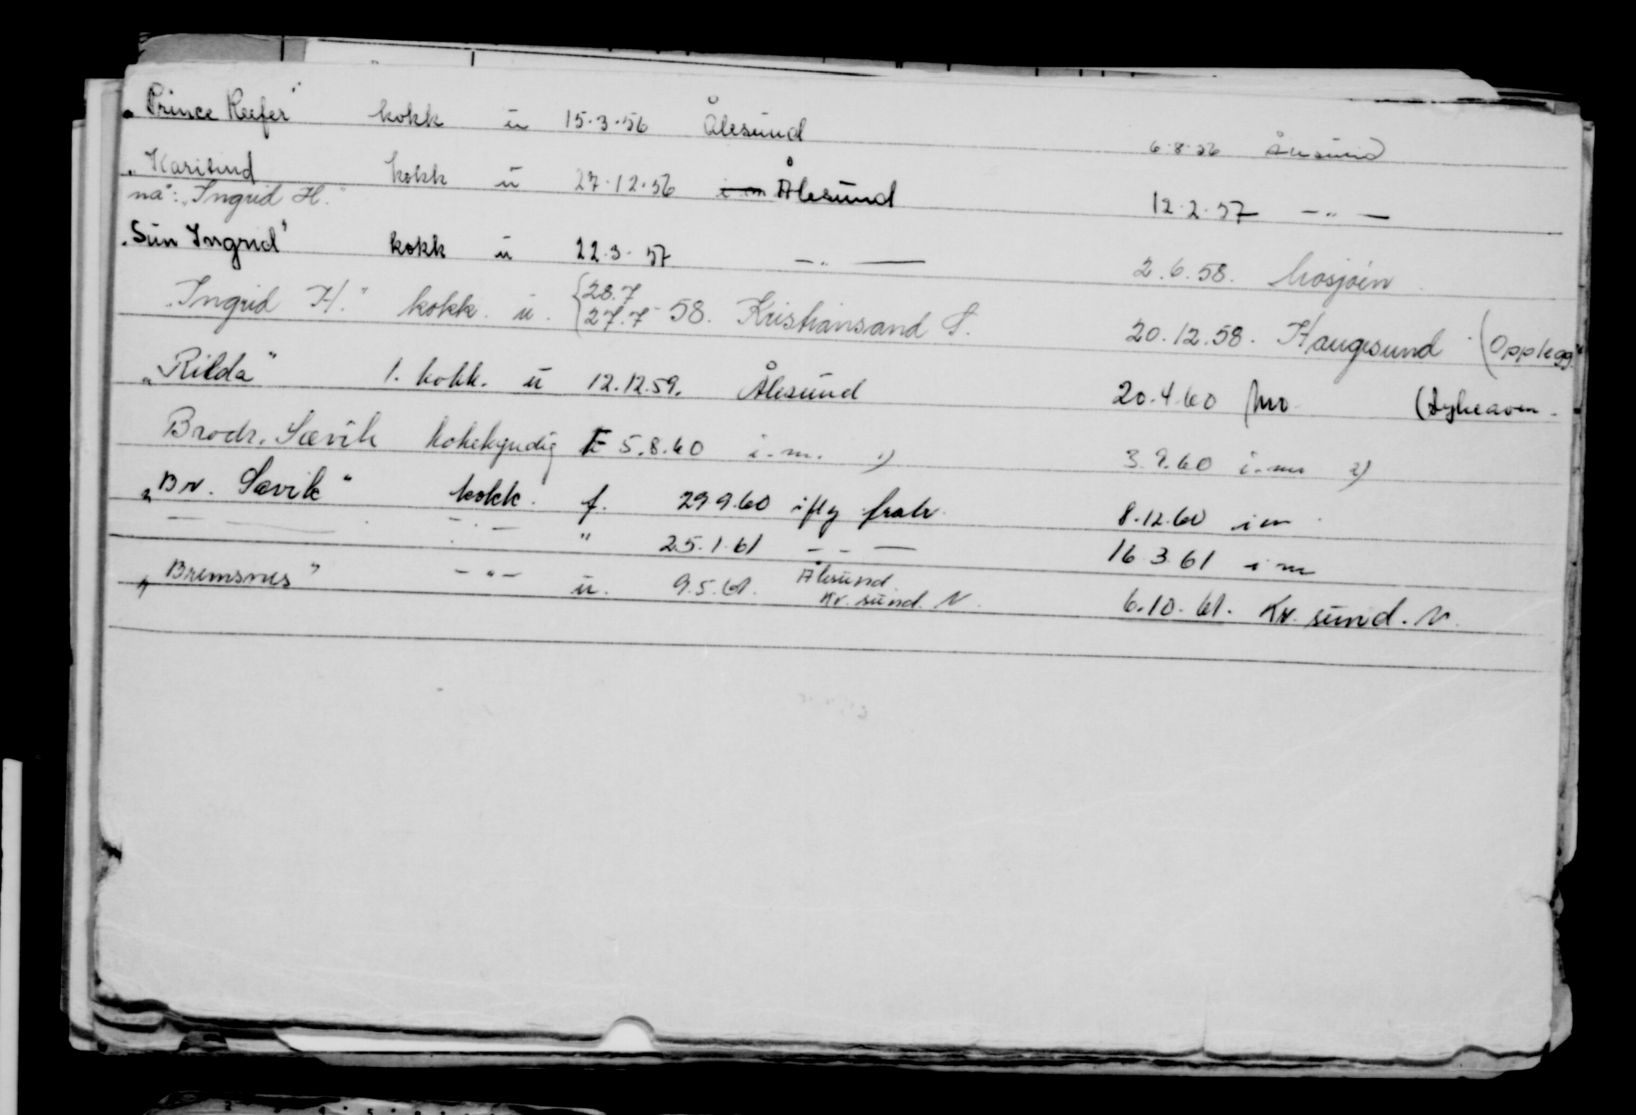 „Prince Reefer" kokk u 15.3.56 Ålesund 6.8.56 Ålesund
„Karisund kokk u 27.12.56 i m Ålesund 12.2.57 — „ —
nå: „Ingrid H."
„Sun Ingrid" kokk u 22.3.57 — „ — 2.6.58. Mosjøen
„Ingrid H." kokk. u. {28.7 27.7 58. Kristiansand S. 20.12.58. Haugesund (Opplegg
„Rilda" 1. kokk. u 12.12.59. Ålesund 20.4.60 Mo
Brodr. Sævik kokekyndig F 5.8.60 i.m. 1) 3.9.60 i.m 2)
„Br. Sævik" kokk. f. 29.9.60 i m 8.12.60 i m
— — — „ — " 25.1.61 — „ — 16.3.61 i m
„Bremsnes" — „ — u. 9.5.61. Ålesund Kr. sund. N. 6.10.61. Kr. sund. N.